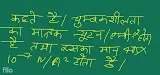 कहते हैं / चुम्बकशीलता
का मात्रक न्यूटन/ एम्पीयर²
है तथा इसका मान 4π×
10⁻⁷ N/A² होता है /
filo